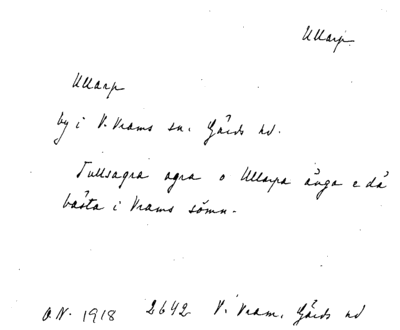 Ullarp.
Ullarp
by i V. Vrams sn. Gärds hd.
Tullsagra agra o Ullarpa änga e då
bästa i Vrams sömn.
O.N. 1918 2642 V. Vram. Gärds hd